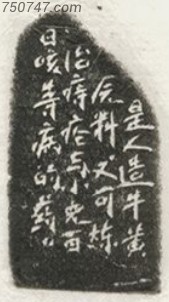 750747.com
是人造牛黄
原料又可炼
治痔疮与小儿百
日咳等病的药。